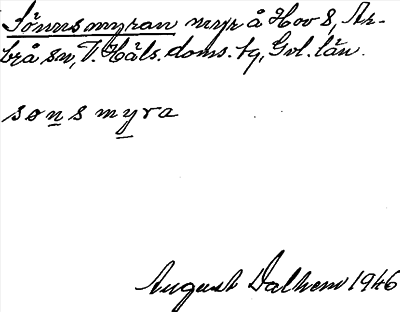 Sönnsmyran myr å Hov 8, Ar-
brå sn, V. Häls. doms. tg, Gvl. län.
sønsmyra
August Dalhem 1946